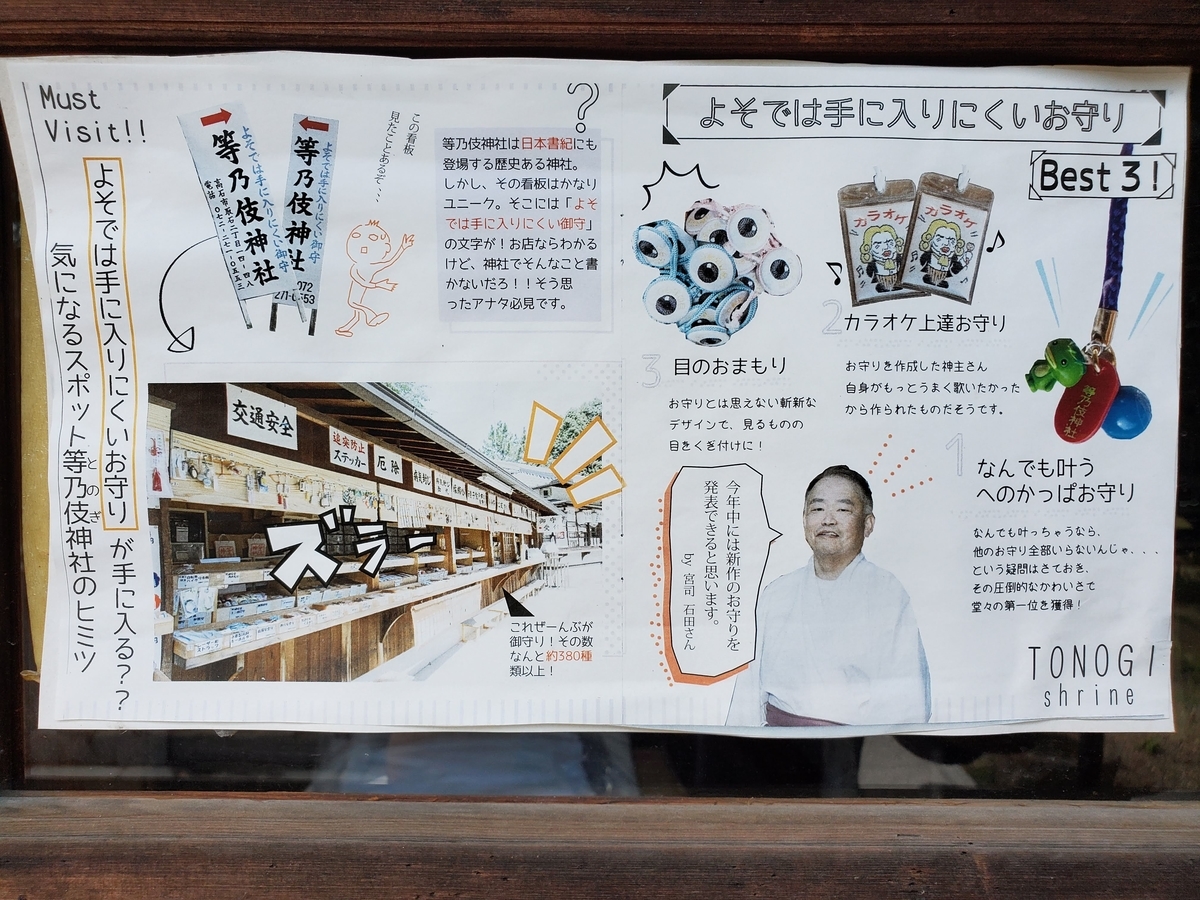 Must
Visit!!
よそでは手に入りにくいお守りが手に入る??
気になるスポット等乃伎神社のヒミツ
とのぎ
よそでは手に入りにくい御守
等乃伎神社
よそでは手に入りにくい御守
等乃伎神社
この看板
見たことあるぞ、、、
?
等乃伎神社は日本書紀にも
登場する歴史ある神社。
しかし、その看板はかなり
ユニーク。そこには「よそ
では手に入りにくい御守」
の文字が!お店ならわかる
けど、神社でそんなこと書
かないだろ!!そう思
ったアナタ必見です。
交通安全
追突防止
ステッカー
厄除
ズラー
これぜーんぶが
御守り!その数
なんと約380種
類以上!
よそでは手に入りにくいお守り
Best 3!
カラオケ
カラオケ
3 目のおまもり
お守りとは思えない斬新な
デザインで、見るものの
目をくぎ付けに!
2 カラオケ上達お守り
お守りを作成した神主さん
自身がもっとうまく歌いたかった
から作られたものだそうです。
等乃伎神社
1 なんでも叶う
へのかっぱお守り
なんでも叶っちゃうなら、
他のお守り全部いらないんじゃ、、、
という疑問はさておき、
その圧倒的なかわいさで
堂々の第一位を獲得!
今年中には新作のお守りを
発表できると思います。
by 宮司 石田さん
TONOGI
shrine